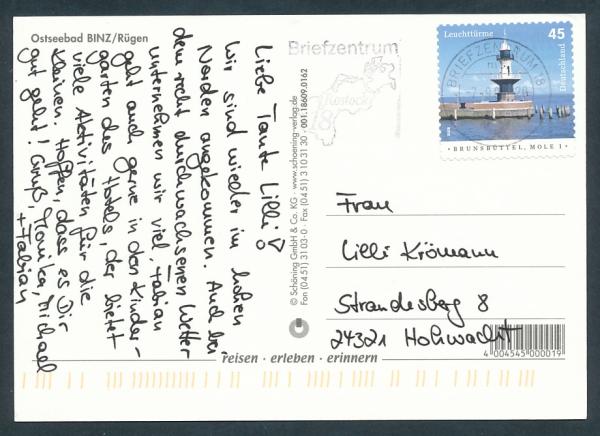 Ostseebad BINZ/Rügen
Liebe Tante Lilli!
Wir sind wieder im hohen
Norden angekommen. Auch bei
dem recht durchwachsenen Wetter
unternehmen wir viel, Fabian
geht auch gerne in den Kinder-
garten des Hotels, der bietet
viele Aktivitäten für die
Kleinen. Hoffen, dass es Dir
gut geht! Gruß, Monika, Michael
+ Fabian
© Schöning GmbH & Co. KG · www.schoening-verlag.de
Fon (04 51) 31 03-0 · Fax (04 51) 3 10 31 30 · 001.18609.0162
Briefzentrum
Rostock
18
Leuchttürme 45
Deutschland
BRIEFZENTRUM 18
BRUNSBÜTTEL, MOLE 1
Frau
Lilli Krömann
Strandesberg 8
24321 Hohwacht
4 004545 000019
reisen · erleben · erinnern